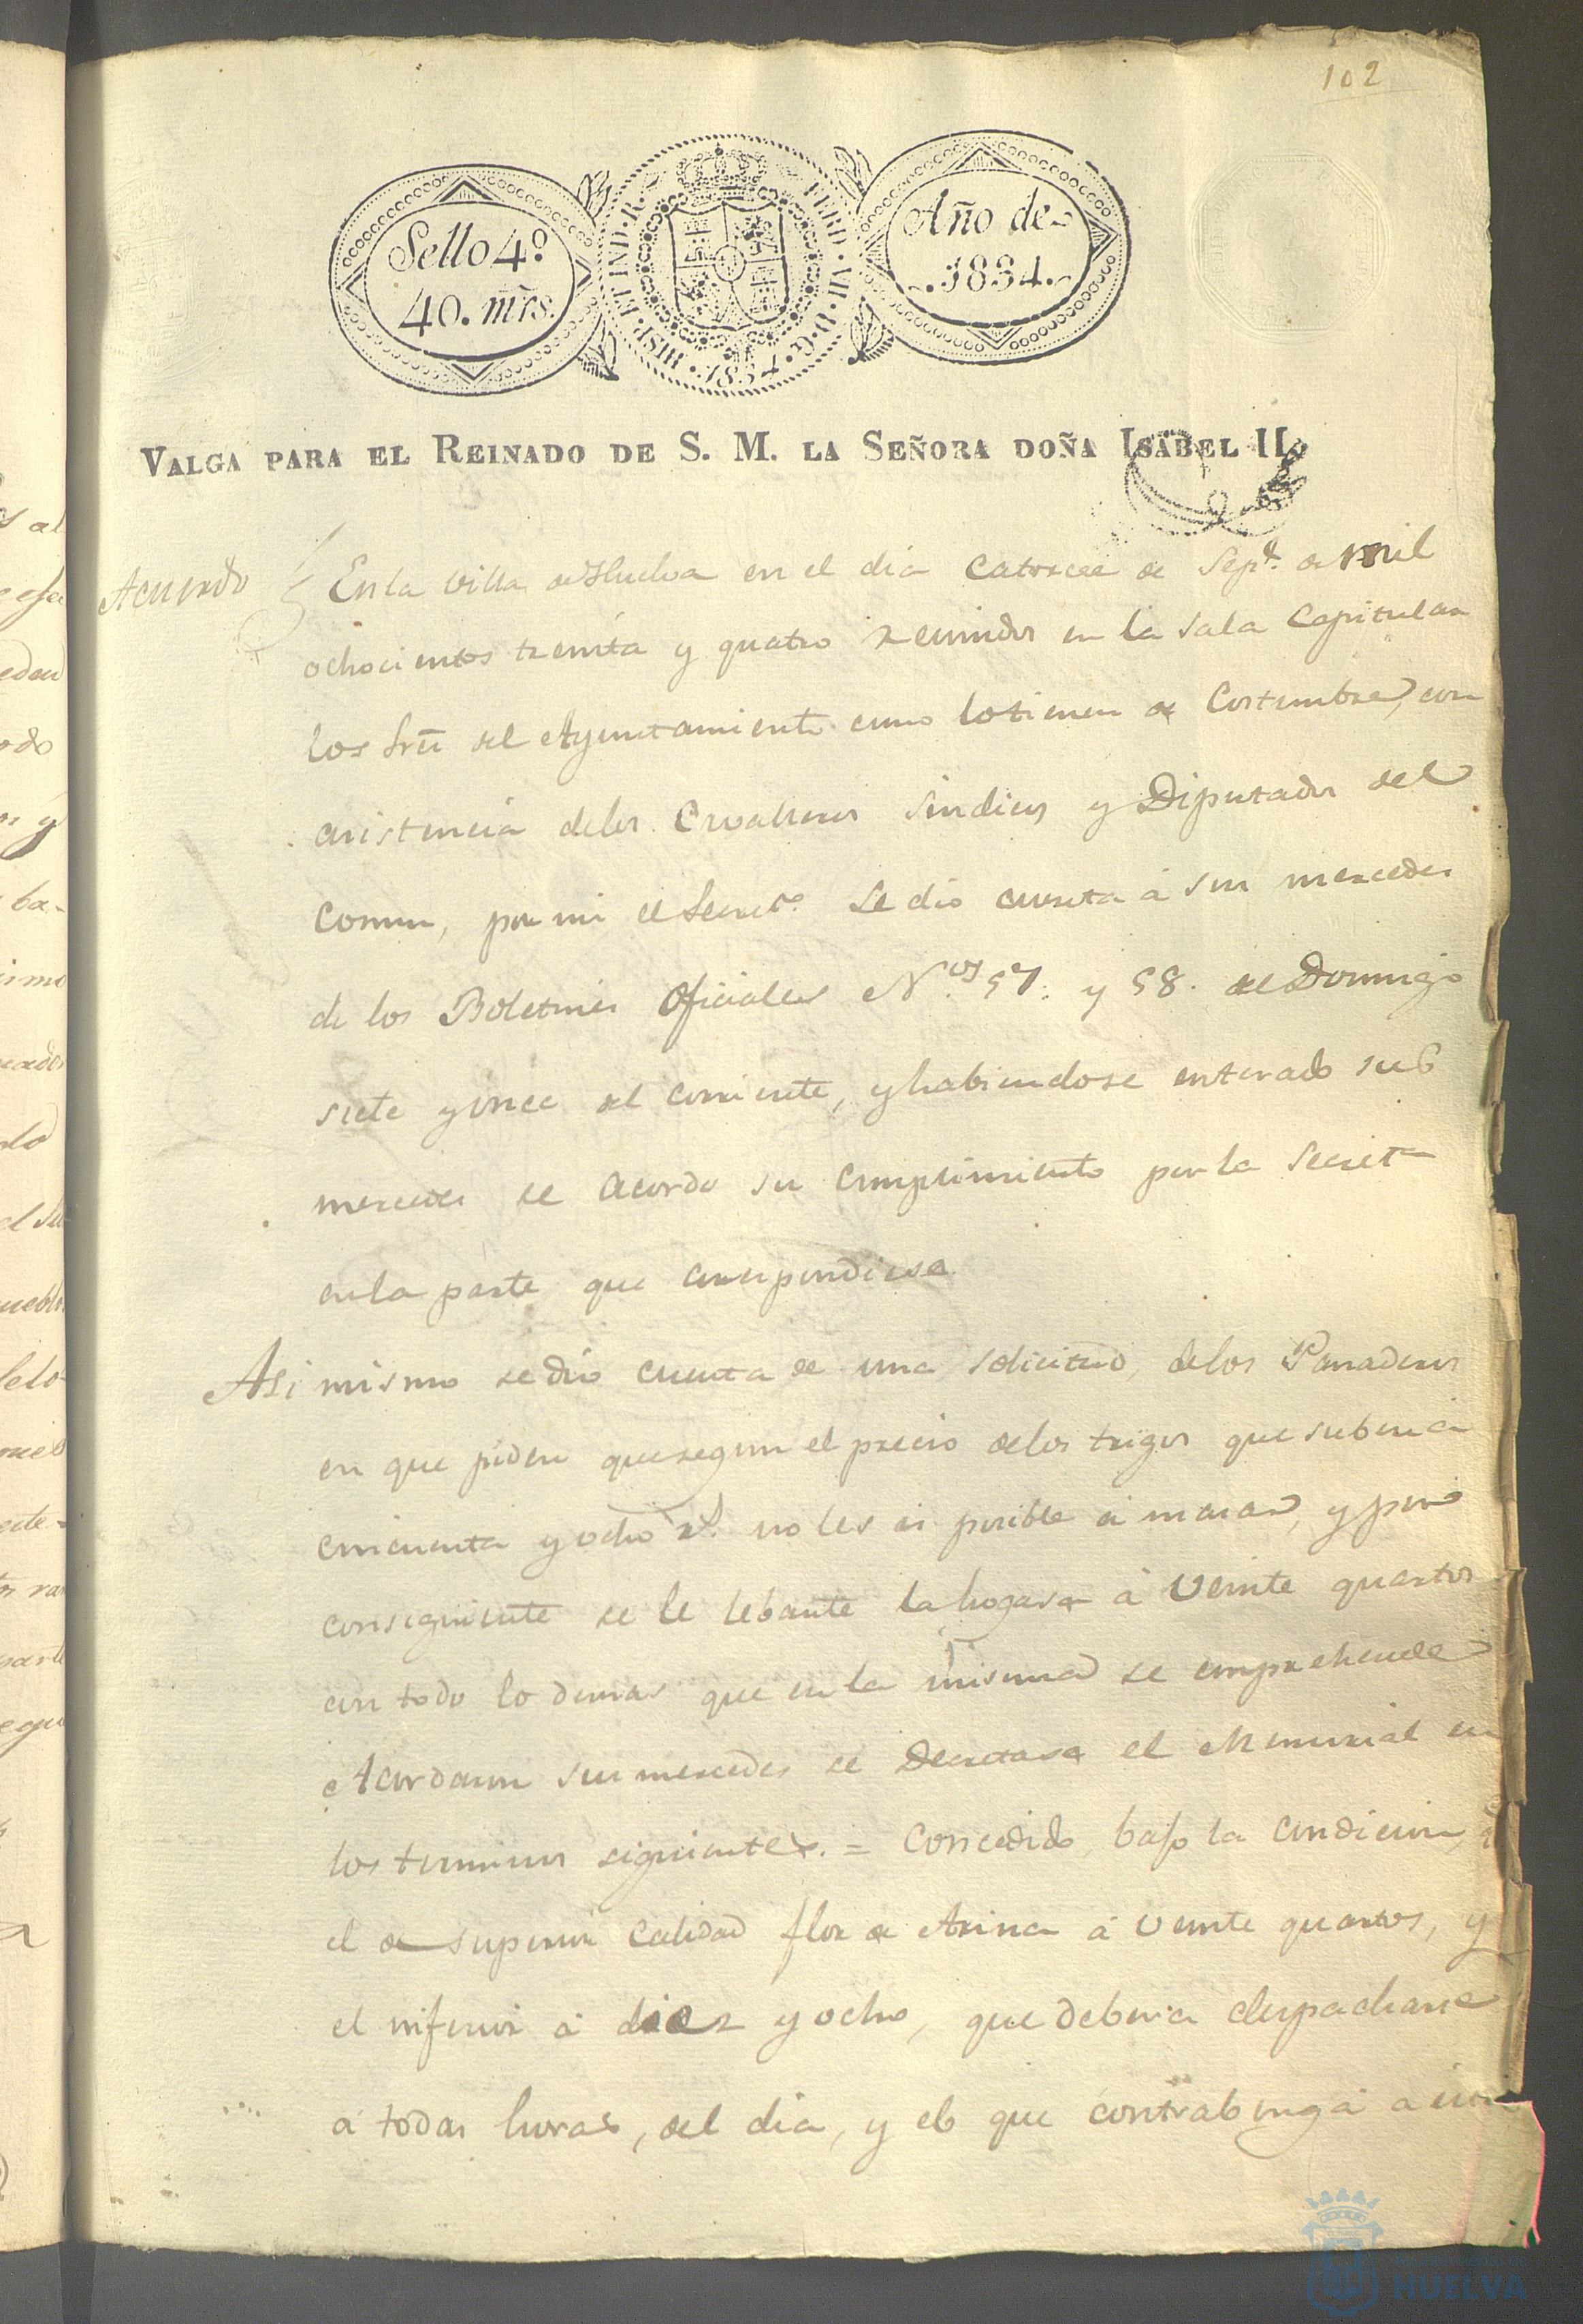 102
Sello 4º
40. mrs.
HISP. ET IND. R.
FERD. VII. D. G.
1834
Año de
1834.
VALGA PARA EL REINADO DE S. M. LA SEÑORA DOÑA ISABEL II.
Acuerdo
En la Villa de Huelva en el dia Catorce de Sepe. de mil
ochocientos treinta y quatro reunidos en la Sala Capitular
los Sres del Ayuntamiento como lo tienen de Costumbre, con
asistencia delos Cavalleros Sindicos y Diputados del
Comun, por mi el Secreto. Se dio cuenta á sus mercedes
de los Boletines Oficiales Nos. 57. y 58. del Domingo
siete y once del corriente, y habiendose enterado sus
mercedes se acordo su cumplimiento por la Secreta
en la parte que correspondiese.
Asi mismo se dio cuenta de una solicitud, delos Panaderos
en que piden que segun el precio delos trigos que suben á
cincuenta y ocho rs. no les es posible amasar, y por
consiguiente se le lebante la hogasa á veinte quartos
con todo lo demas que en la misma se comprehende
Acordaron sus mercedes se decretase el Memorial en
los terminos siguientes. = Concedido bajo la condicion,
el de superior calidad flor de Arina á veinte quartos, y
el inferior á diez y ocho, que deberia despacharse
á todas horas, del dia, y el que contrabenga a
HUELVA